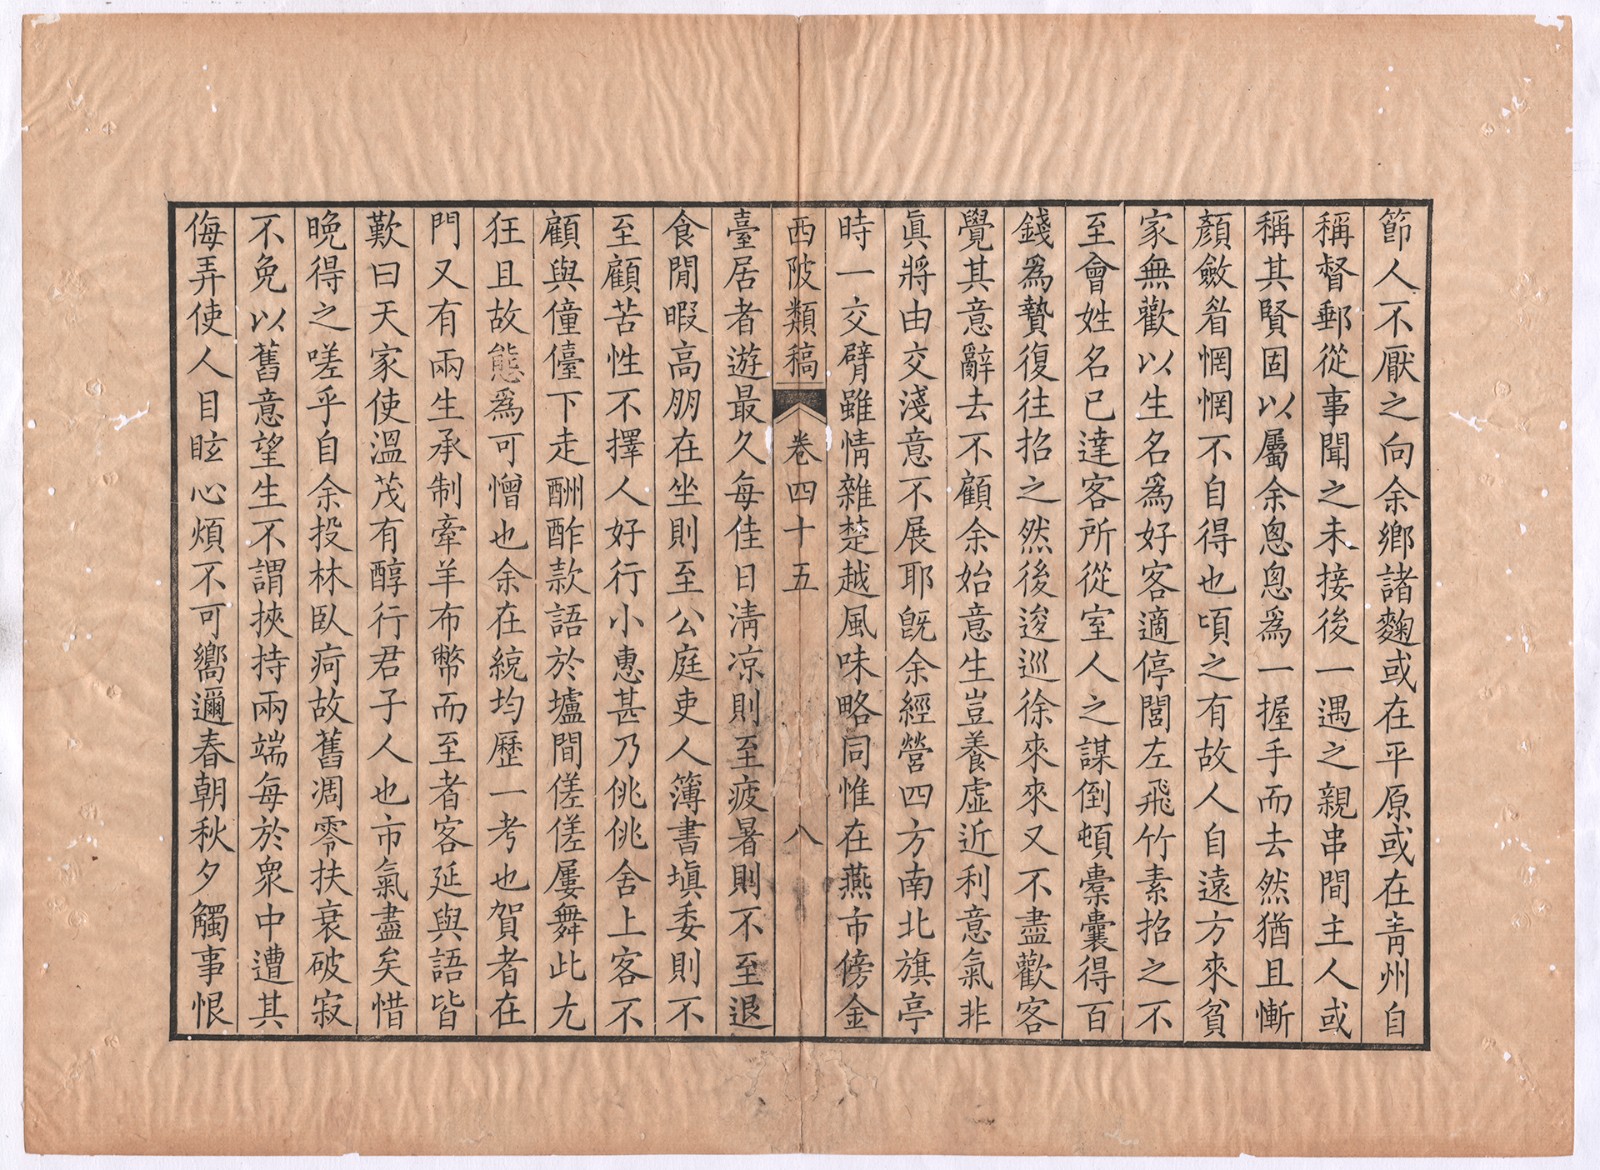 節人不厭之向余鄉諸麴或在平原或在青州自
稱督郵從事聞之未接後一遇之親串間主人或
稱其賢固以屬余悤悤爲一握手而去然猶且慚
顏斂眢惘惘不自得也頃之有故人自遠方來貧
家無歡以生名爲好客適停閭左飛竹素招之不
至會姓名已達客所從室人之謀倒頓橐囊得百
錢爲贄復往招之然後逡巡徐來來又不盡歡客
覺其意辭去不顧余始意生豈養虛近利意氣非
眞將由交淺意不展耶旣余經營四方南北旗亭
時一交臂雖情雜楚越風味略同惟在燕市傍金
西陂類稿 卷四十五 八
臺居者遊最久每佳日淸凉則至疲暑則不至退
食閒暇高朋在坐則至公庭吏人簿書塡委則不
至顧苦性不擇人好行小惠甚乃佻佻舍上客不
顧與僮儓下走酬酢款語於壚間傞傞屢舞此尤
狂且故態爲可憎也余在統均歷一考也賀者在
門又有兩生承制牽羊布幣而至者客延與語皆
歎曰天家使溫茂有醇行君子人也市氣盡矣惜
晩得之嗟乎自余投林臥疴故舊凋零扶衰破寂
不免以舊意望生不謂挾持兩端每於衆中遭其
侮弄使人目眩心煩不可嚮邇春朝秋夕觸事恨